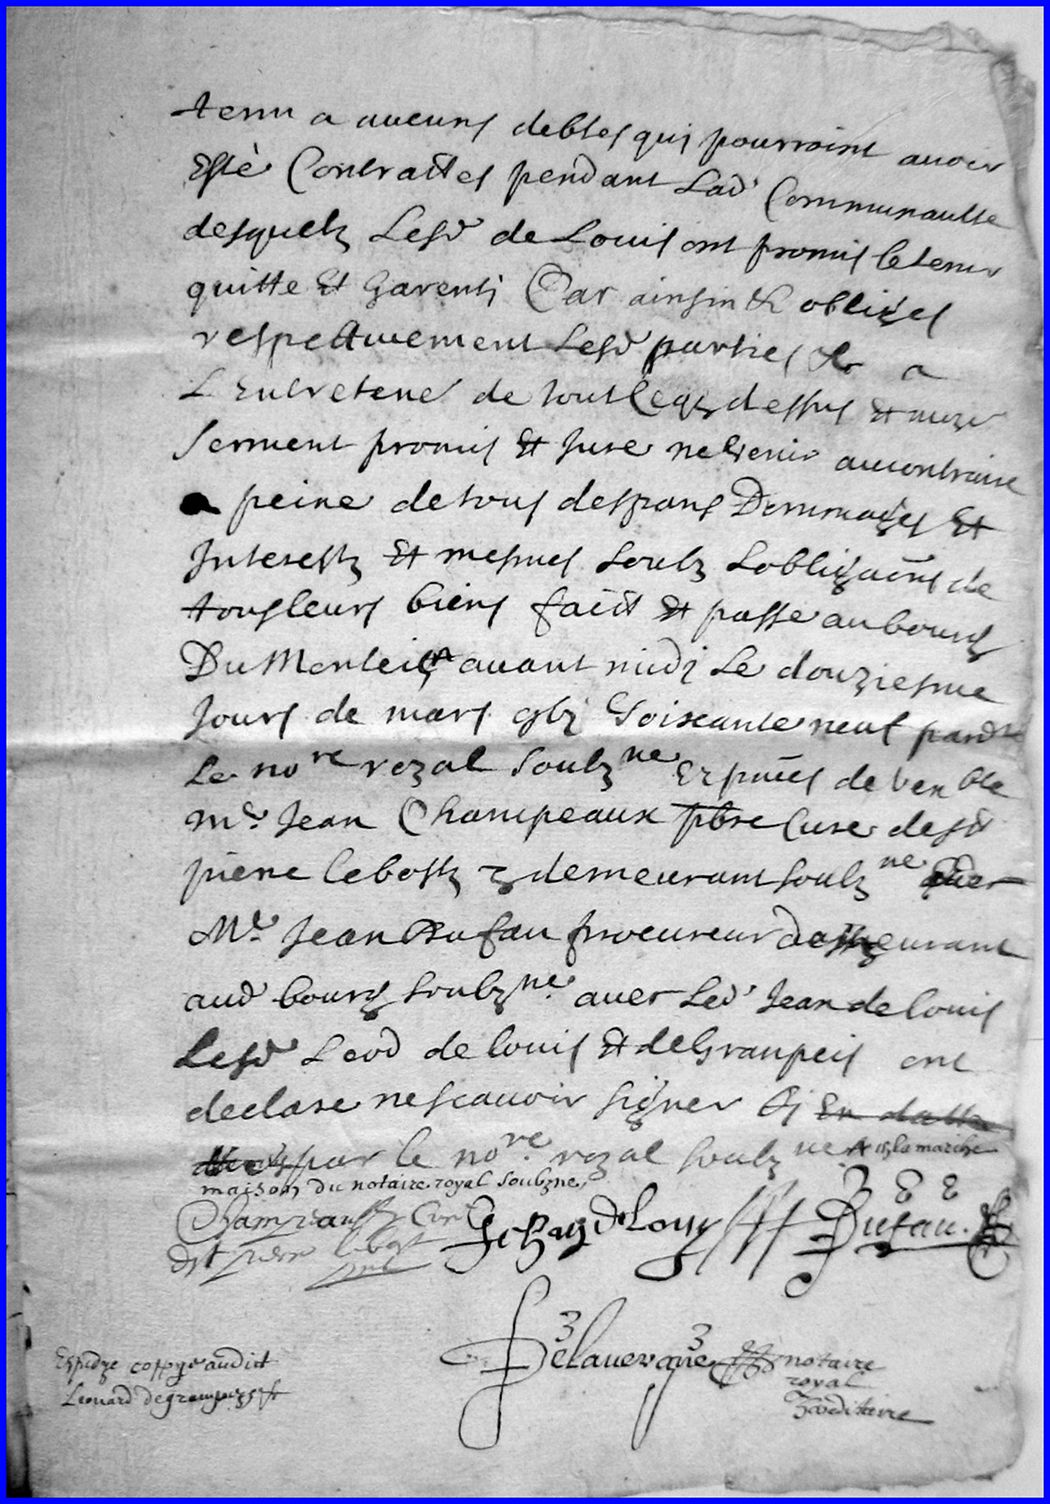 tenu a aucuns debtes quj pourroint avoir
Esté Contractes pendant Lad Communaulte
desquelz Lesd de Louis ont promis le tenir
quitte Et garenti Car ainsin & obliges
respectivement Lesd parties & a
L Entretene de tout ceqz dessus Et
serment promis Et Jure ne venir aucontraire
a peine de tous despans Dommages Et
Interestz Et mesmes soubz Lobligaons de
tous leurs biens faict Et passe au bourg
Du Monteil avant midj Le douziesme
Jours de mars gbj soixante neuf pard
Le no re royal soubz ne Ez pntes de ven ble
m e Jean Champeaux pbre Cure de st
pierre lebostz y demeurant soubz ne
M e Jean Dufau procureur demeurant
aud bourg soubz ne avec Led Jean de louis
Lesd Leod de louis Et deGranpeis ont
declare ne scavoir signer
par le no re royal soubz ne
maison du notaire royal soubzne
Champeaux Cure J de Louys Dufau.
de st pierre lebost
Delavergne notaire
royal
hereditaire
Expidye coppye audict
Leonard